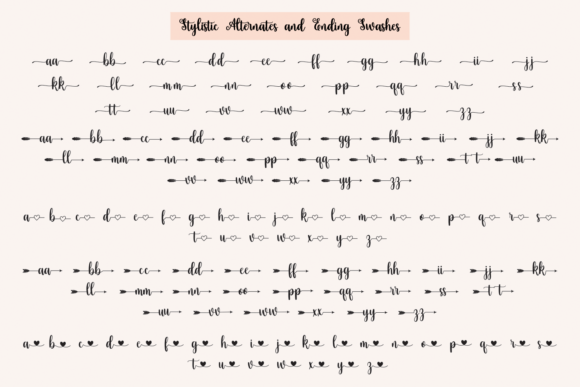 Stylistic Alternates and Ending Swashes
aa bb cc dd ee ff gg hh ii jj
kk ll mm nn oo pp qq rr ss
tt uu vv ww xx yy zz
aa bb cc dd ee ff gg hh ii jj kk
ll mm nn oo pp qq rr ss tt uu
vv ww xx yy zz
a b c d e f g h i j k l m n o p q r s
t u v w x y z
aa bb cc dd ee ff gg hh ii jj kk
ll mm nn oo pp qq rr ss tt
uu vv ww xx yy zz
a b c d e f g h i j k l m n o p q r s
t u v w x y z